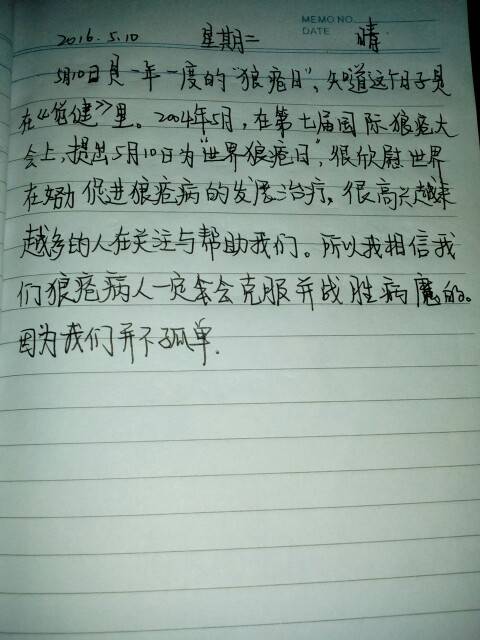 MEMO NO.
DATE
2016.5.10 星期二 晴
5月10日是一年一度的“狼疮日”,知道这个日子是
在《佰健》里。2004年5月,在第七届国际狼疮大
会上,提出5月10日为“世界狼疮日”,很欣慰世界
在努力促进狼疮病的发展治疗,很高兴越来
越多的人在关注与帮助我们。所以我相信我
们狼疮病人一定会克服并战胜病魔的。
因为我们并不孤单.